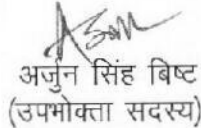 अर्जुन सिंह बिष्ट
(उपभोक्ता सदस्य)